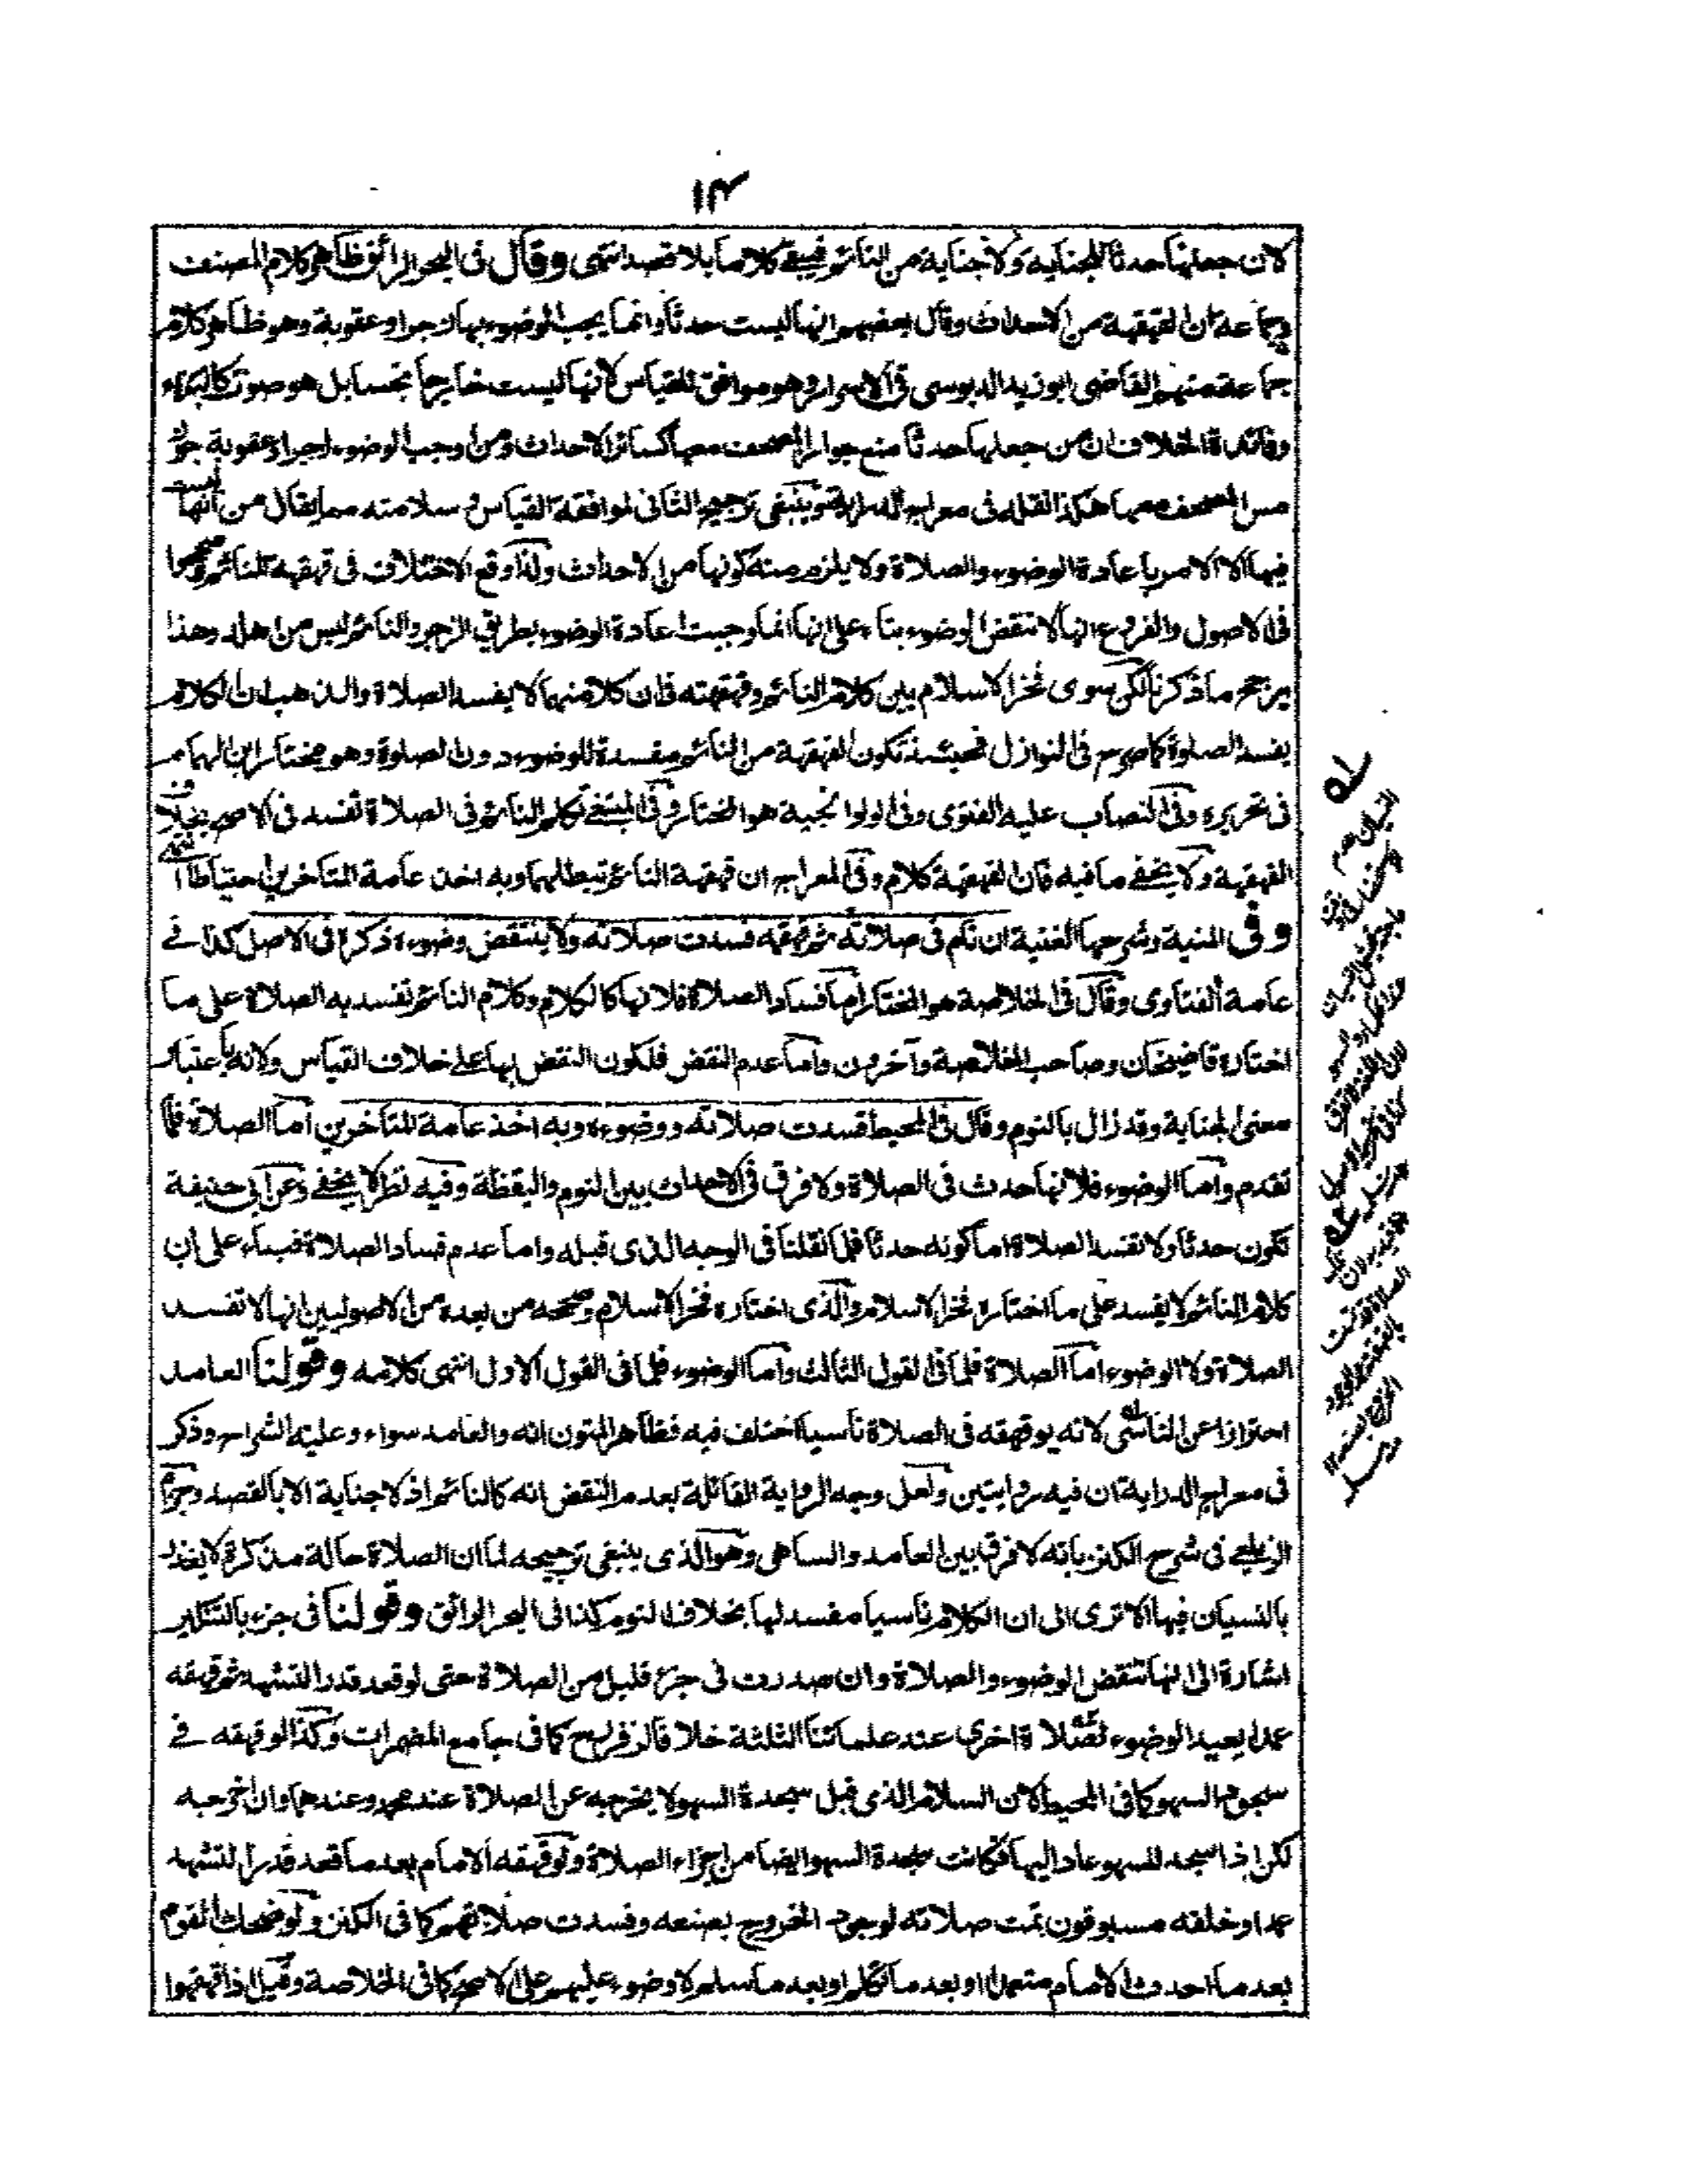 ١٤
لان جعلها حدثا للجناية ولا جناية من النائم فبقى كلاما بلا قصد انتهى وقال فى البحر الرائق ظاهر كلام المصنف
وجماعة ان القهقهة من الاحداث وقال بعضهم انها ليست حدثا وانما يجب الوضوء بها زجرا وعقوبة وهو ظاهر كلام
جماعة منهم القاضى ابو زيد الدبوسى فى الاسرار وهو موافق للقياس لانها ليست خارجا نجسا بل هو صوت كالبكاء
وفائدة الخلاف ان من جعلها حدثا منع جواز المصحف معها كسائر الاحداث ومن اوجب الوضوء زجرا وعقوبة جوز
مس المصحف معها هكذا نقله فى معراج الدراية وينبغى ترجيح الثانى لموافقة القياس وسلامته مما يقال من انها ليست
فيها الا الامر باعادة الوضوء والصلاة ولا يلزم منه كونها من الاحداث ولذا وقع الاختلاف فى قهقهة النائم وصححوا
فى الاصول والفروع انها لا تنقض الوضوء بناء على انها انما وجبت اعادة الوضوء بطريق الزجر والنائم ليس من اهله وهذا
يرجح ما ذكرنا لكن سوى فخر الاسلام بين كلام النائم وقهقهته فان كلا منهما لا يفسد الصلاة والمذهب ان الكلام
يفسد الصلوة كما صرح فى النوازل فحينئذ تكون القهقهة من النائم مفسدة للوضوء دون الصلوة وهو مختار ابن الهمام
فى تحريره وفى النصاب عليه الفتوى وفى الولوالجية هو المختار وفى المبتغى تكلم النائم فى الصلاة تفسد فى الاصح بخلاف
القهقهة ولا يخفى ما فيه فان القهقهة كلام وفى المعراج ان قهقهة النائم تبطلهما وبه اخذ عامة المتاخرين احتياطا انتهى
وفى المنية وشرحها الغنية ان نام فى صلاته ثم قهقه فسدت صلاته ولا ينتقض وضوءه ذكره فى الاصل كذا فى
عامة الفتاوى وقال فى الخلاصة هو المختار اما فساد الصلاة فلانها كالكلام وكلام النائم تفسد به الصلاة على ما
اختاره قاضيخان وصاحب الخلاصة وآخرون واما عدم النقض فلكون النقض بها على خلاف القياس ولانه باعتبار
معنى الجناية وقد زال بالنوم وقال فى المحيط فسدت صلاته ووضوءه وبه اخذ عامة المتاخرين اما الصلاة فلما
تقدم واما الوضوء فلانها حدث فى الصلاة ولا فرق فى الاحداث بين النوم واليقظة وفيه نظر لا يخفى وعن ابى حنيفة
تكون حدثا ولا تفسد الصلاة اما كونه حدثا فلما نقلنا فى الوجه الذى قبله واما عدم فساد الصلاة فبناء على ان
كلام النائم لا يفسد على ما اختاره فخر الاسلام والذى اختاره فخر الاسلام وصححه من بعده من الاصوليين انها لا تفسد
الصلاة ولا الوضوء اما الصلاة فلما فى القول الثالث واما الوضوء فلما فى القول الاول انتهى كلامه وقولنا العامد
احترازا عن الناسى لانه لو قهقه فى الصلاة ناسيا اختلف فيه فظاهر المتون انه والعامد سواء وعليه الشراح وذكر
فى معراج الدراية ان فيه روايتين ولعل وجه الرواية القائلة بعدم النقض انه كالنائم اذ لا جناية الا بالقصد وجزم
الزيلعى فى شرح الكنز بانه لا فرق بين العامد والساهى وهو الذى ينبغى ترجيحه لما ان الصلاة حالة مذكرة لا يعذر
بالنسيان فيها الا ترى الى ان الكلام ناسيا مفسد لها بخلاف النوم كذا فى البحر الرائق وقولنا فى جزء بالتنكير
اشارة الى انها تنقض الوضوء والصلاة وان صدرت فى جزء قليل من الصلاة حتى لو قعد قدر التشهد ثم قهقه
عمدا يعيد الوضوء لصلاة اخرى عند علمائنا الثلثة خلافا لزفر رح كما فى جامع المضمرات وكذا لو قهقه فى
سجود السهو كما فى المحيط لان السلام الذى قبل سجدة السهو لا يخرجه عن الصلاة عند محمد وعندهما وان اخرجه
لكن اذا سجد للسهو عاد اليها فكانت سجدة السهو ايضا من اجزاء الصلاة ولو قهقه الامام بعد ما قعد قدر التشهد
عمدا وخلفه مسبوقون تمت صلاته لوجود الخروج بصنعه وفسدت صلاتهم كما فى الكنز ولو ضحك القوم
بعد ما احدث الامام متعمدا او بعد ما تكلم او بعد ما سلم لا وضوء عليهم على الاصح كما فى الخلاصة وقيل اذا قهقهوا